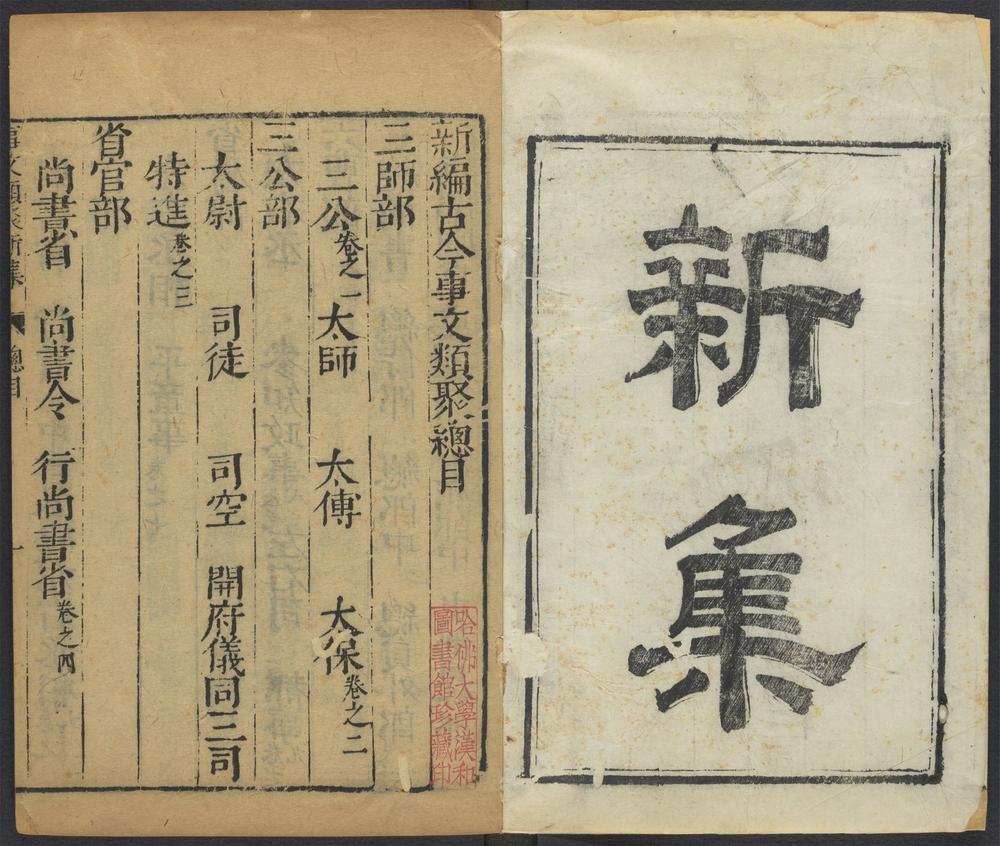 新集
新編古今事文類聚總目
三師部
三公卷之一 太師 太傅 太保卷之二
三公部
太尉 司徒 司空 開府儀同三司
特進卷之三
省官部
尚書省 尚書令 行尚書省卷之四
事文類聚新集 總目 一
哈佛大學漢和
圖書館珍藏印